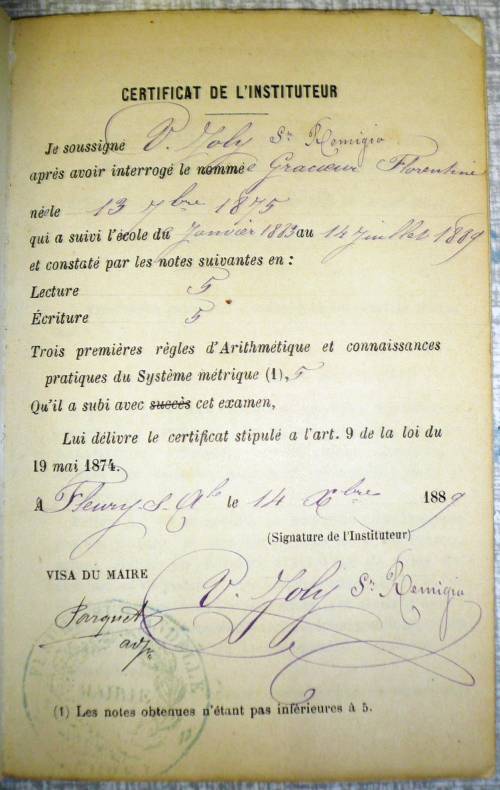 CERTIFICAT DE L'INSTITUTEUR
Je soussigné V. Joly Sr Remigio
après avoir interrogé le nommé Gracieux Florentine
née le 13 7bre 1875
qui a suivi l'école du Janvier 1883 au 14 Juillet 1889
et constaté par les notes suivantes en :
Lecture 5
Écriture 5
Trois premières règles d'Arithmétique et connaissances
pratiques du Système métrique (1), 5
Qu'il a subi avec succès cet examen,
Lui délivre le certificat stipulé a l'art. 9 de la loi du
19 mai 1874.
A Fleury-s-Ale le 14 Xbre 1889
(Signature de l'Instituteur)
VISA DU MAIRE
V. Joly Sr Remigio
adjt
MAIRIE
(1) Les notes obtenues n'étant pas inférieures à 5.